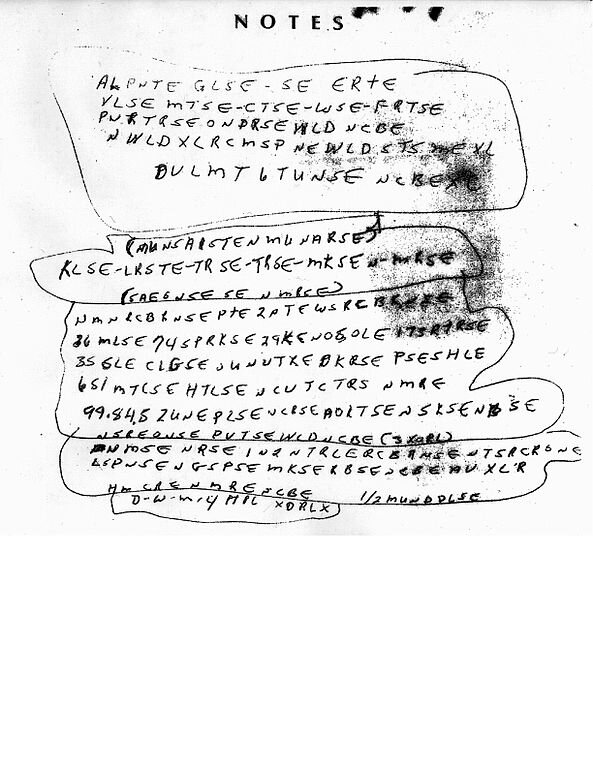 NOTES
ALPNTE GLSE-SE ERTE
VLSE MTSE-CTSE-WSE-FRTSE
PNRTRSEONDRSEWLD NCBE
NWLDXLRCMSP NEWLDSTSMEXL
DULMT6TUNSE NCBEXC
(MUNSAISTENMUNARSE)
KLSE-LRSTE-TRSE-TRSE-MKSEN-MRSE
(SAEGNSESE NMRSE)
NMNRCBRNSEPTE2PTEWSRCBRNSE
36MLSE 74SPRKSE29KENOSOLE 173RTRSE
35GLE CLGSE UNUTXEDKRSE PSESHLE
651MTCSE HTLSE NCUTCTRS NMRE
99.84.52UNEPLSE NCRSEAOLTSENSKSENBSE
NSREONSE PUTSEWLDNCBE (3XORL)
NMSE NRSE IN2NTRLERCBRNSE NTSRCRONE
LSPNSENGSPSE MKSERBSE NCBE AUXL'R
HMCRENMRE NCBE 1/2 MUNDDLSE
D-W-M-14 MIL XDRLX